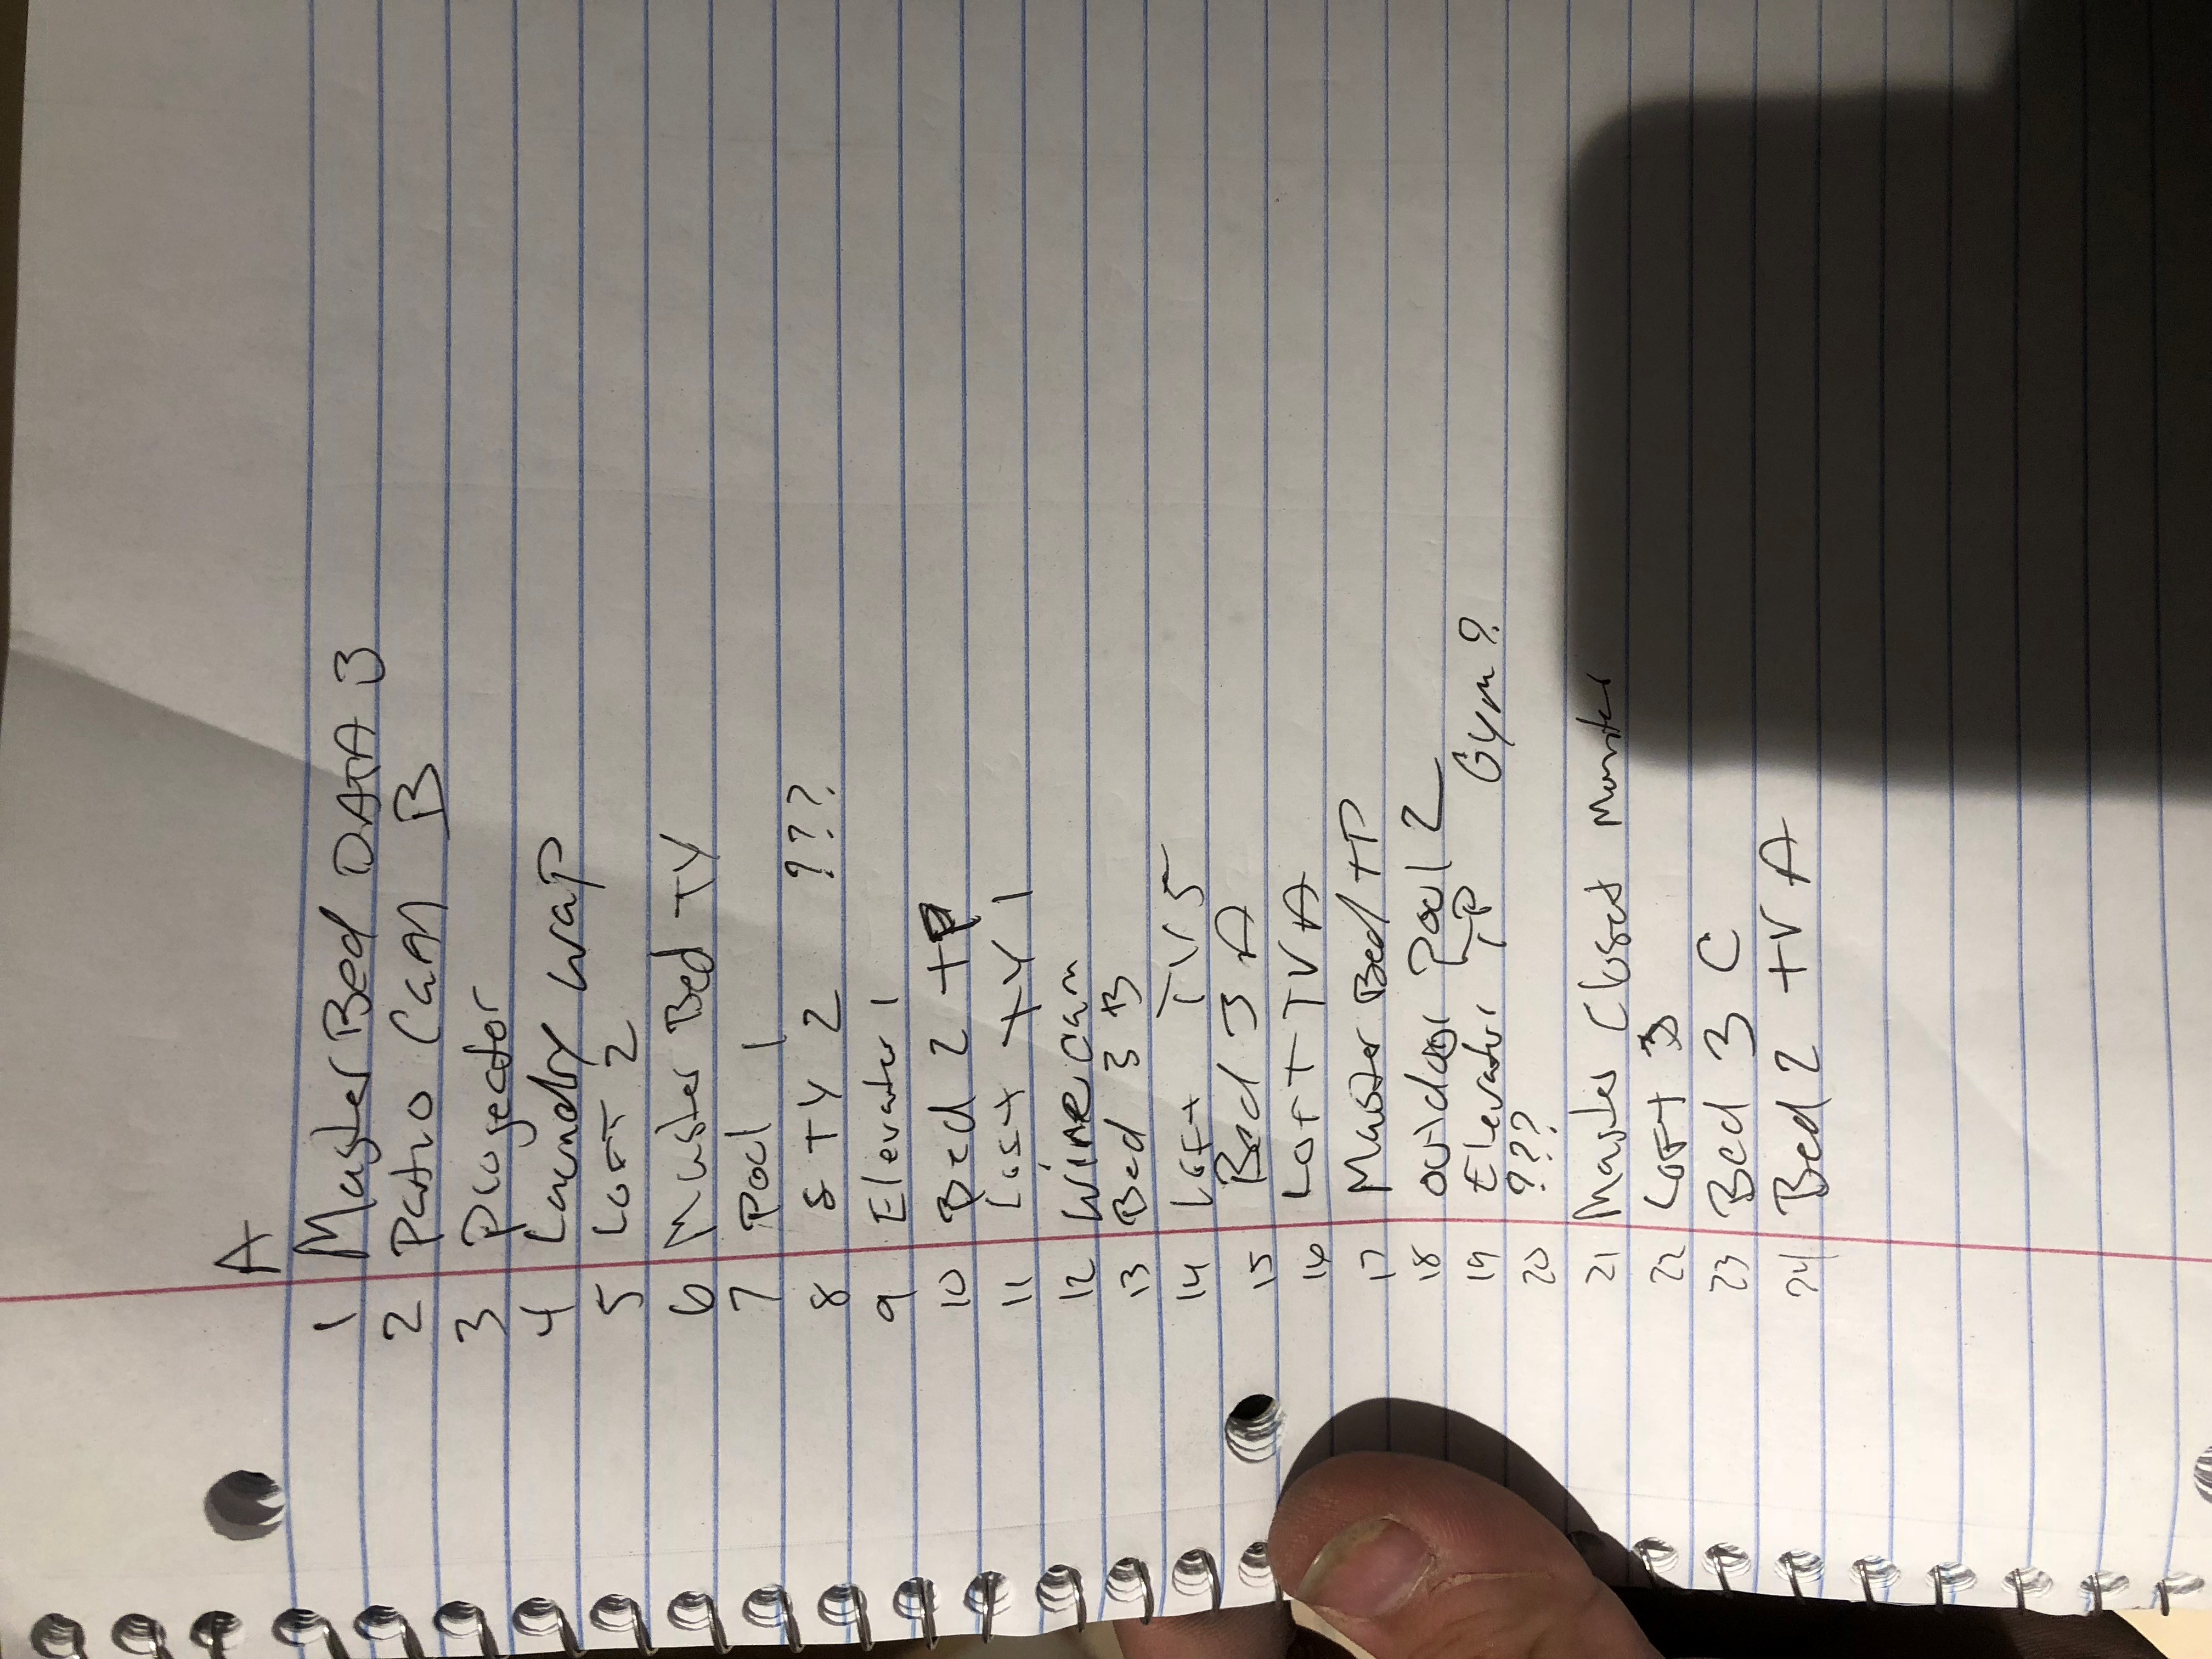 A
1 Master Bed DATA 3
2 Patio Cam B
3 Projector
4 Laundry WAP
5 LOFT 2
6 Master Bed TV
7 Pool 1
8 STY 2 ???
9 Elevator 1
10 Bed 2 TP
11 Loft TV 1
12 Wine cam
13 Bed 3 B
14 Loft TV 5
15 Bed 3 A
16 LOFT TV A
17 Master Bed TP
18 outdoor pool 2
19 Elevator TP Gym?
20 ???
21 Master Closet Monitor
22 LOFT 3
23 Bed 3 C
24 Bed 2 TV A